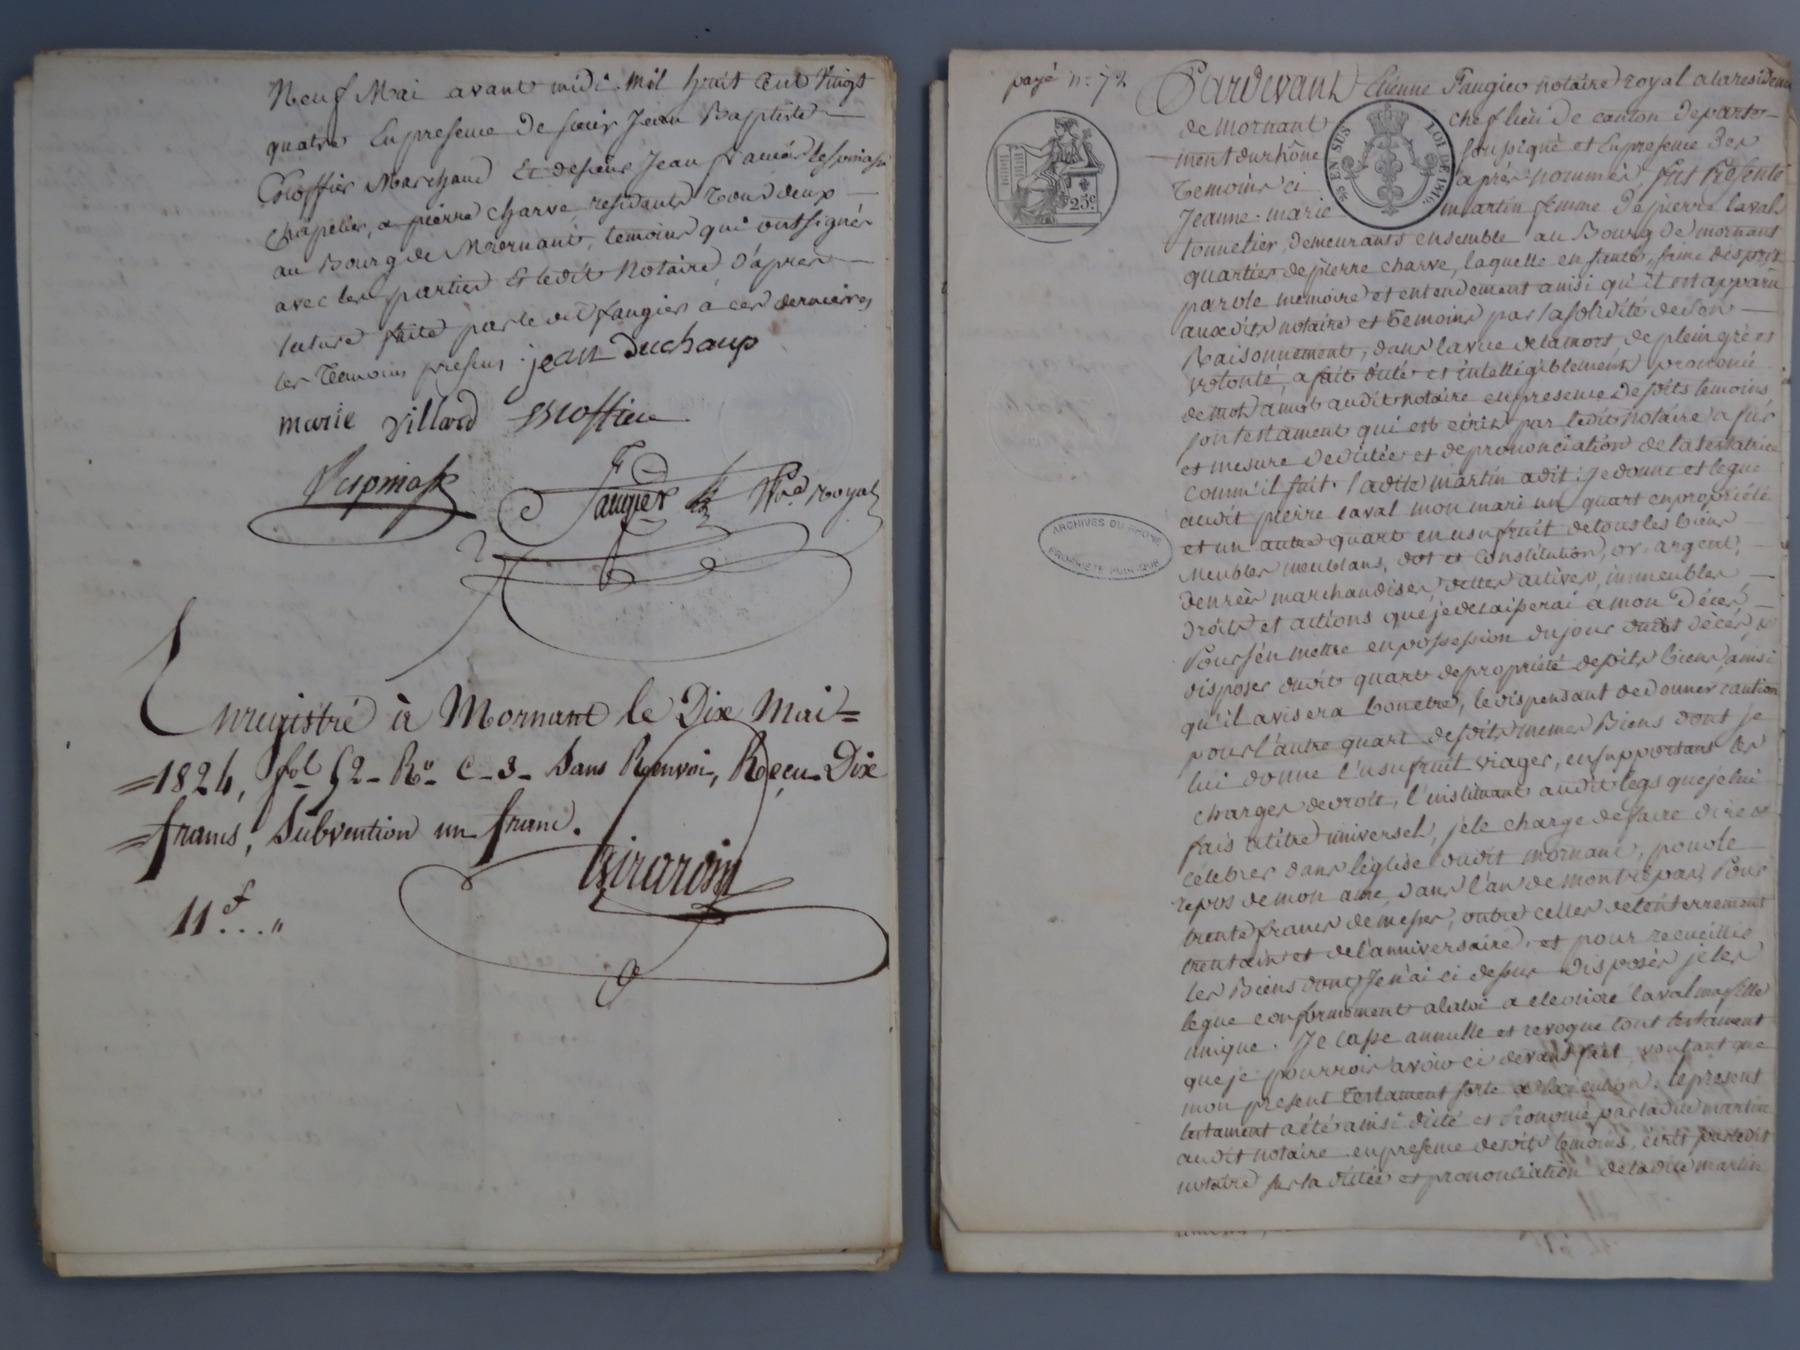 Neuf Mai avant midi mil huit cent vingt
quatre En presence de sieur Jean Baptiste
Marchand Et de sieur Jean
Chapelier, a pierre charve residants tous deux
au Bourg de Mornant, temoins qui ont signés
avec les parties Et ledit Notaire d'après
lecture faite par le dit faugier à ces dernieres
les Temoins presens. jean Duchamp
marie villard
faugier Nre Royal
Enregistré à Mornant le Dix Mai =
= 1824, fol 52 - Ro. C - 3 - Sans Renvoi, Reçu Dix
= francs, Subvention un franc.
Girardin
11 f . . . "
payé n: 72
Pardevant Etienne Faugier notaire royal a la residence
de mornant chef lieu de canton departe-
ment du rhône soussigné et En presence des
temoins ci après nommés fut Présente
Jeanne-marie martin femme de pierre laval
tonnelier, demeurants ensemble au Bourg de mornant
quartier de pierre charve, laquelle en santé, saine d'esprit
parole memoire et entendement ainsi qu'il est apparu
auxdits notaire et temoins par la solidité de son
Raisonnement, dans la vue de la mort, de plein gré et
volonté, a fait dicté et intelligiblement prononcé
de mot à mot audit notaire en presence desdits temoins
son testament qui est ecrit par ledit notaire a fur
et mesure de dictée et de prononciation de la testatrice
comm'il suit. ladite martin a dit: Je donne et legue
audit pierre laval mon mari un quart en propriété
et un autre quart en usufruit de tous les biens
Meubles meublans, dot et constitution, or, argent,
denrées marchandises, dettes actives, immeubles
droits et actions que je delaisserai à mon Décès,
Pour s'en mettre en possession du jour dudit décès,
disposer dudit quart de propriété desdits biens ainsi
qu'il avisera bon etre, le dispensant de donner caution
pour l'autre quart desdits memes Biens dont je
lui donne l'usufruit viager, en supportant les
charges de droit, l'instituant audit legs que je lui
fais a titre universel, je le charge de faire dire et
célébrer dans l'église dudit mornant, pour le
repos de mon ame, dans l'an de mon trépas, Pour
trente francs de messes, outre celles de l'enterrement
trentain et de l'anniversaire, et pour recueillir
les Biens dont Je n'ai ci dessus disposés je les
legue conformement a la loi a eleonore laval ma fille
unique. Je casse annulle et revoque tout testament
que je pourrois avoir ci devant fait, voulant que
mon present testament sorte a execution. le present
testament a été ainsi dicté et prononcé par ladite martin
audit notaire en presence desdits temoins, écrit par ledit
notaire sur la dictée et prononciation de ladite martin
25 c
25 EN SUS
LOI DE 1816
ARCHIVES DU RHONE
PROPRIETE PUBLIQUE